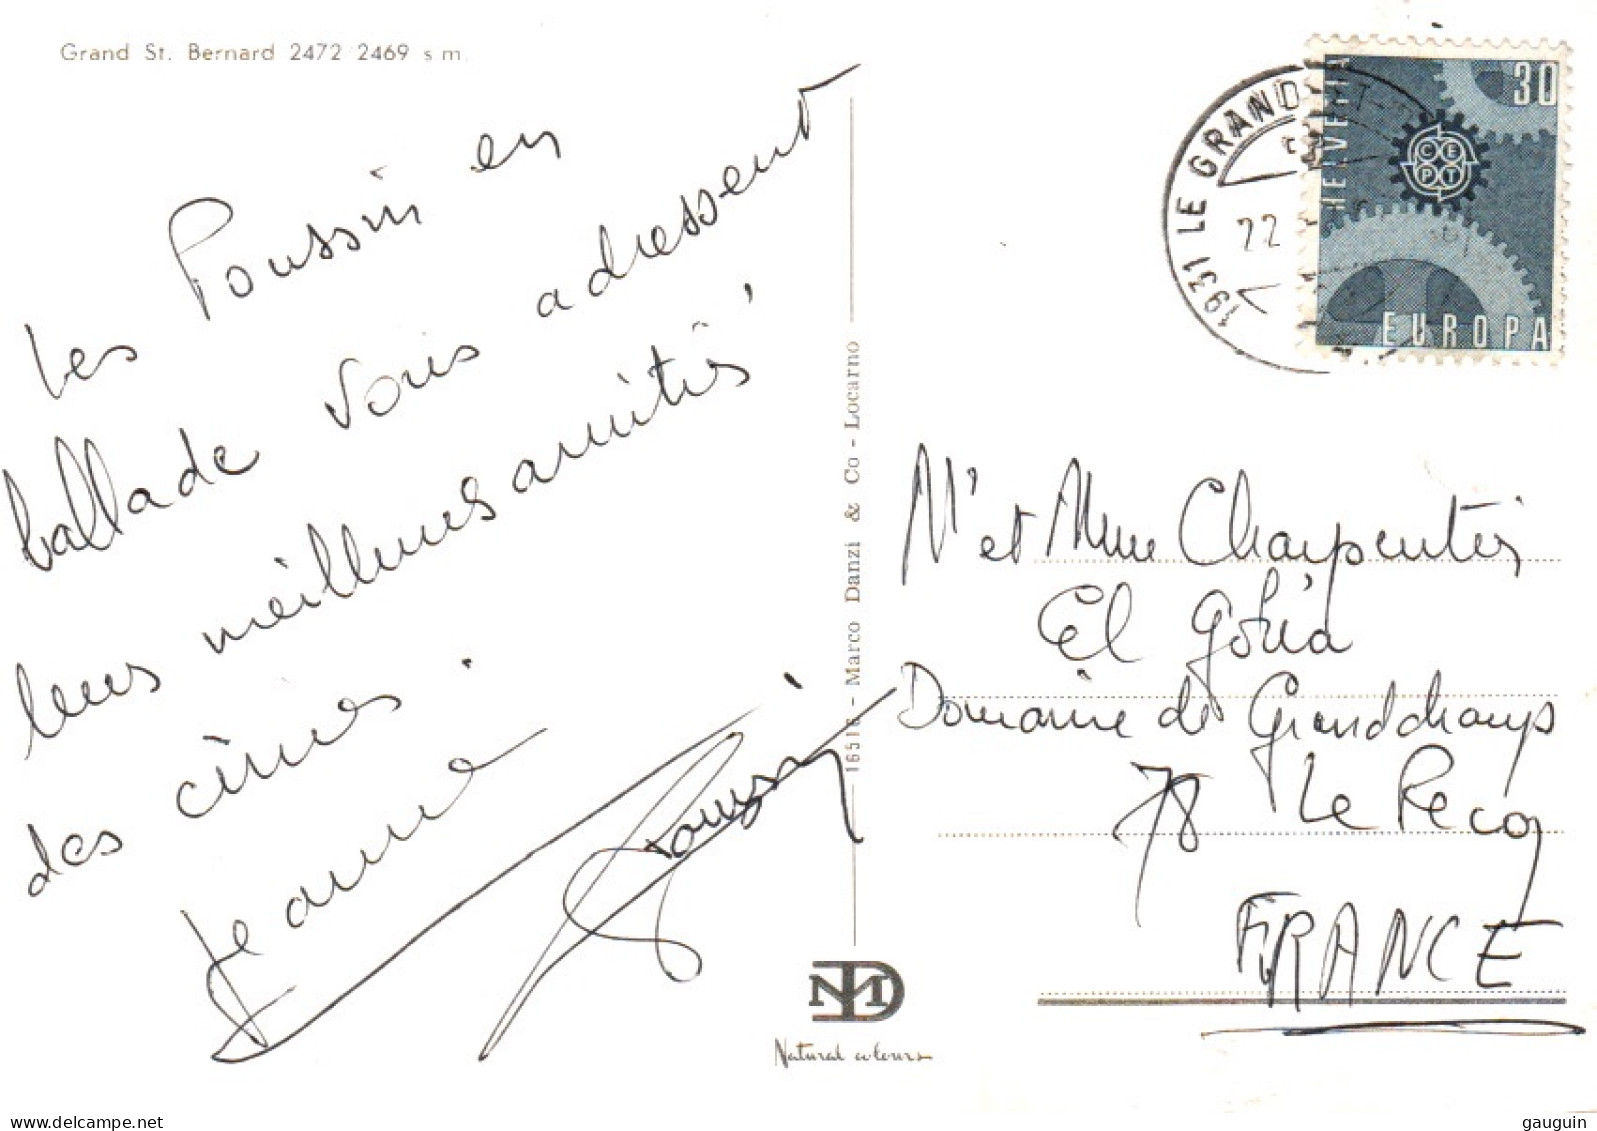 Grand St. Bernard 2472 2469 s m.
Les Poussin en
ballade vous adressent
leurs meilleures amitiés
des cimes.
Jeanne
Poussin
16516 - Marco Danzi & Co - Locarno
NDM
Natural colours
1931 LE GRAND-ST-
22
HELVETIA
30
CEPT
EUROPA
Mr et Mme Charpentier
El
Domaine de Grandchamps
78 Le Pecq
FRANCE
gauguin